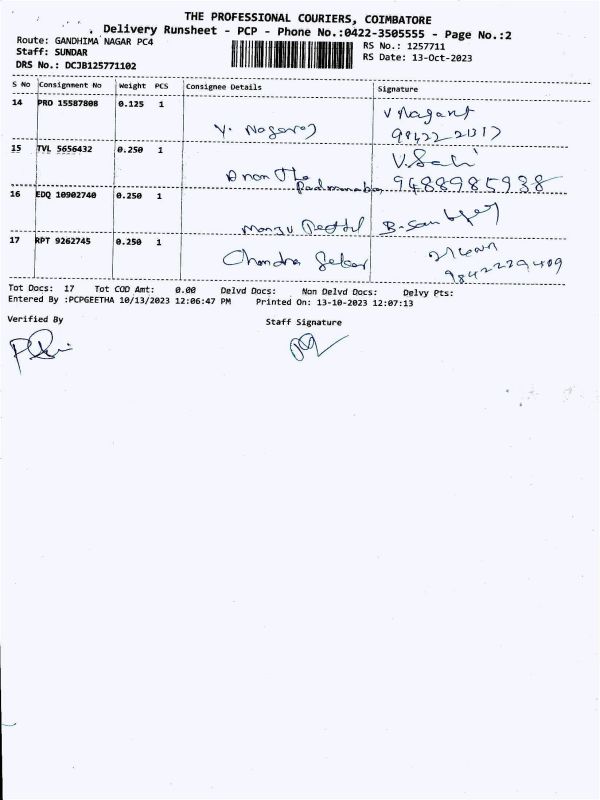 THE PROFESSIONAL COURIERS, COIMBATORE
Delivery Runsheet - PCP - Phone No.:0422-3505555 - Page No.:2
Route: GANDHIMA NAGAR PC4
RS No.: 1257711
Staff: SUNDAR
RS Date: 13-Oct-2023
DRS No.: DCJB125771102
S No Consignment No Weight PCS Consignee Details Signature
14 PRO 15587808 0.125 1
Y. Nagaraj
V Nagaraj
15 TVL 5656432 0.250 1
V. Sali
Anantha
Padmanaban 9488985938
16 EDQ 10902740 0.250 1
Manju
17 RPT 9262745 0.250 1
Chandra Sekar
9842229409
Tot Docs: 17 Tot COD Amt: 0.00 Delvd Docs: Non Delvd Docs: Delvy Pts:
Entered By :PCPGEETHA 10/13/2023 12:06:47 PM Printed On: 13-10-2023 12:07:13
Verified By
Staff Signature